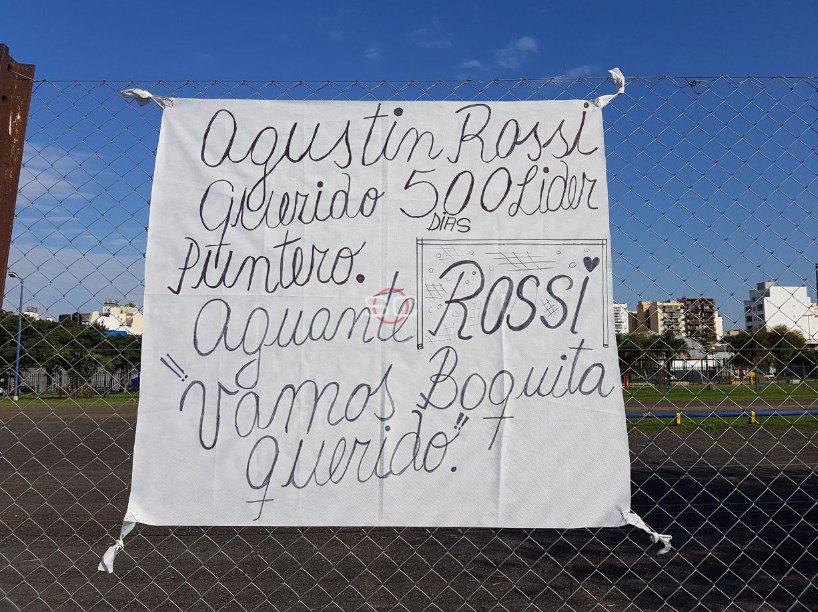 Agustin Rossi
Querido 500 Lider
DÍAS
Puntero.
Aguante ROSSi
"Vamos Boquita
querido".